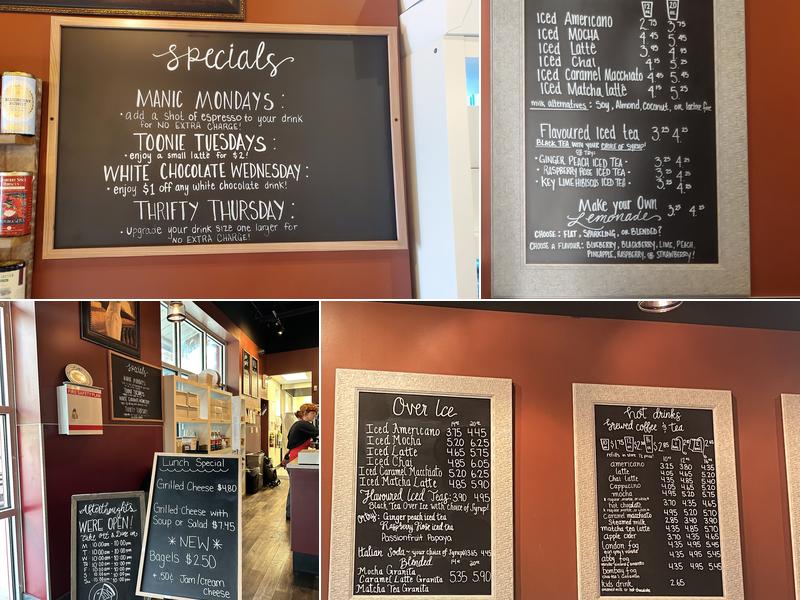 specials
MANIC MONDAYS :
• add a shot of espresso to your drink
for NO EXTRA CHARGE!
TOONIE TUESDAYS :
• enjoy a small latte for $2!
WHITE CHOCOLATE WEDNESDAY :
• enjoy $1 off any white chocolate drink!
THRIFTY THURSDAY :
• upgrade your drink size one larger for
NO EXTRA CHARGE!
Iced Americano 2.75 3.75
Iced MOCHA 4.45 5.45
Iced Latte 3.95 4.95
Iced Chai 4. 5.
Iced Caramel Macchiato 4.45 5.45
Iced Matcha latte 4. 5.
milk alternatives : Soy, Almond, Coconut, or lactose free
Flavoured Iced tea 3.25 4.25
BLACK TEA WITH YOUR CHOICE OF SYRUP!
OR TRY:
• GINGER PEACH ICED TEA • 3.25 4.25
• RASPBERRY ROSE ICED TEA • 3.25 4.25
• KEY LIME HIBISCUS ICED TEA • 3.25 4.25
Make your Own
Lemonade 3.25 4.25
CHOOSE : FLAT, SPARKLING, OR BLENDED?
CHOOSE A FLAVOUR : BLUEBERRY, BLACKBERRY, LIME, PEACH,
PINEAPPLE, RASPBERRY, OR STRAWBERRY!
FIRE SAFETY PLAN
specials
MANIC MONDAYS
TOONIE TUESDAYS
WHITE CHOCOLATE WEDNESDAY
THRIFTY THURSDAY
Lunch Special
Grilled Cheese $4.80
Grilled Cheese with
Soup or Salad $7.45
*NEW*
Bagels $2.50
+ .50¢ Jam/Cream
Cheese
Afterthoughts
WE'RE OPEN!
Take out & Dine in
Over Ice
Iced Americano 3.75 4.45
Iced Mocha 5.20 6.25
Iced Latte 4.65 5.75
Iced Chai 4.85 6.05
Iced Caramel Macchiato 5.20 6.25
Iced Matcha Latte 4.85 5.90
Flavoured Iced Teas 3.90 4.95
Black Tea Over Ice with choice of Syrup!
Ginger peach iced tea
Raspberry Rose iced tea
Passionfruit Papaya
Italian Soda ~ your choice of Syrup! 3.85 4.45
Blended
Mocha Granita
Caramel Latte Granita 5.35 5.90
Matcha Tea Granita
hot drinks
brewed coffee & tea
americano 3.25 3.80 4.35
latte 4.05 4.65 5.20
Chai latte 4.35 4.85 5.45
Cappuccino 4.05 4.65 5.20
mocha 4.95 5.20 5.75
hot chocolate
caramel macchiato
Steamed milk 2.85 3.40 3.90
matcha tea latte
apple cider 3.70
london fog 4.35 4.95 5.45
abby fog
bombay fog 4.35 4.95 5.45
kids drink 2.65